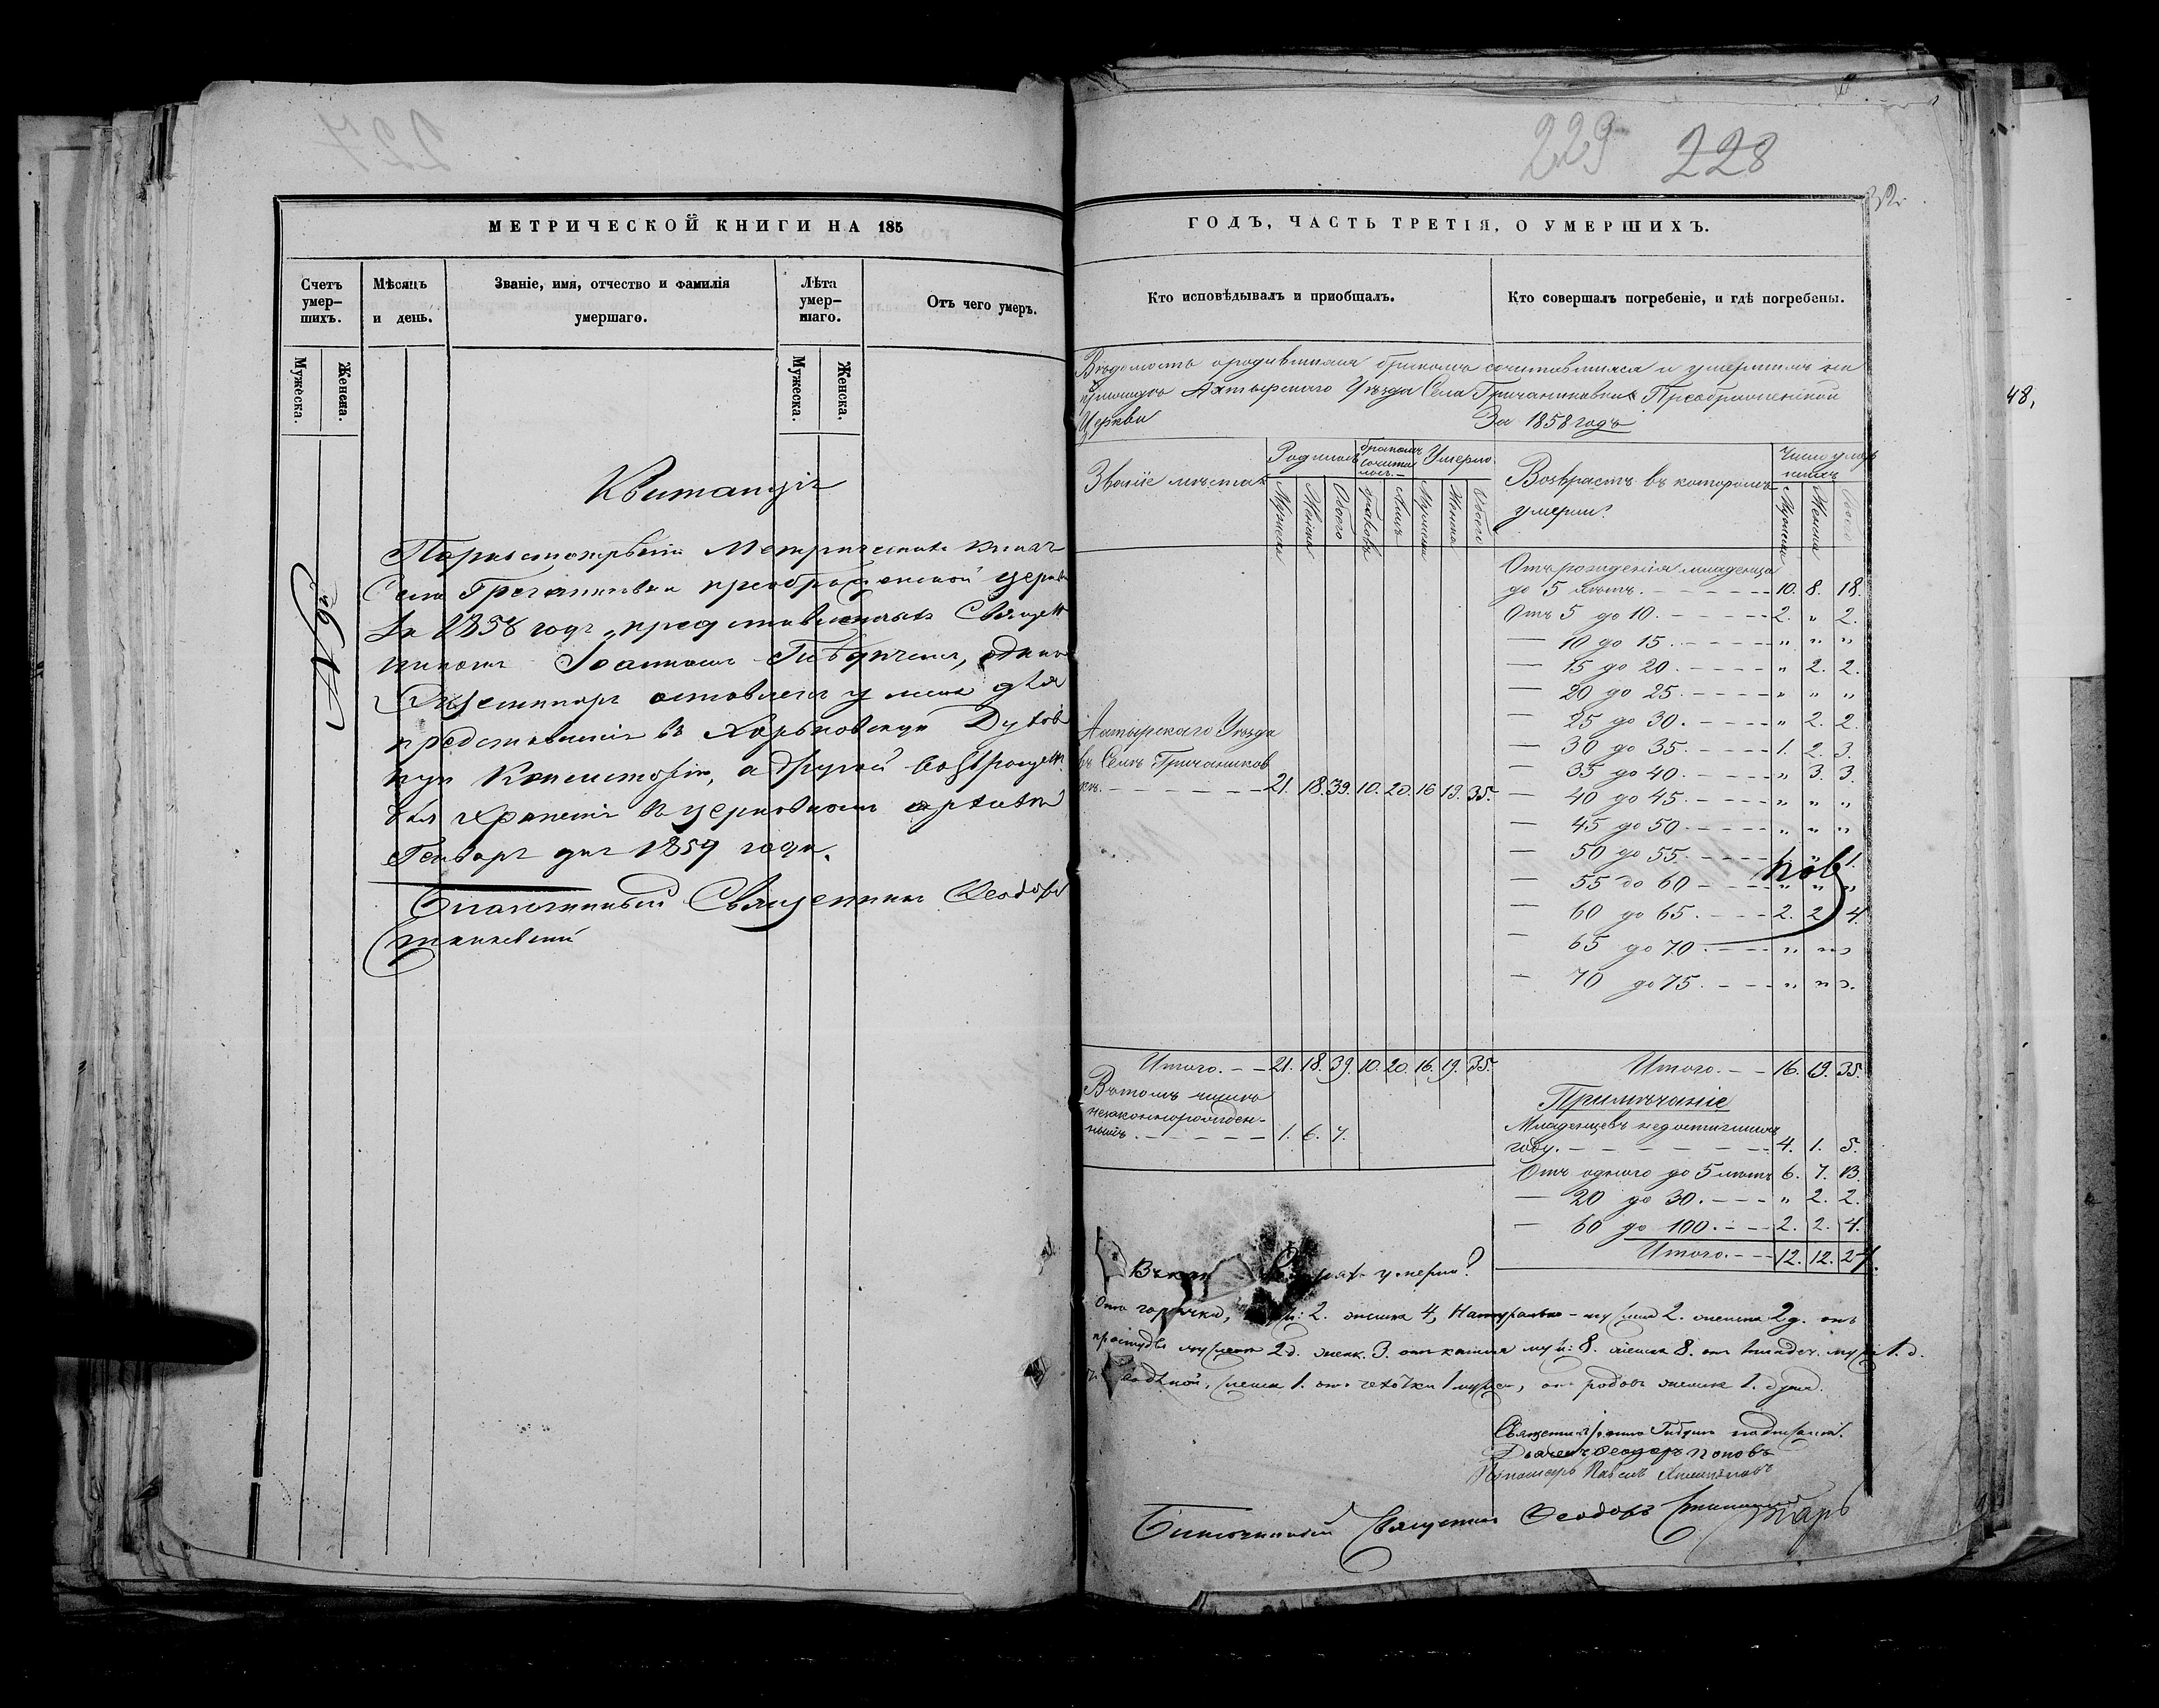 229 228
МЕТРИЧЕСКОЙ КНИГИ НА 185
Счетъ умер-шихъ.
Мужеска.
Женска.
Мѣсяцъ и день.
Званіе, имя, отчество и фамилія умершаго.
Лѣта умер-шаго.
Мужеска.
Женска.
Отъ чего умеръ.
Квитанція
По разсмотрѣніи Метрическихъ книгъ
Села Преображенской церкви
За 1858 годъ представленныхъ Священ
никомъ Іоанномъ одинъ
Экземпляръ оставленъ у меня для
представленія въ Харьковскую Духов
ную Консисторію, а другой возвращенъ
для храненія въ церковномъ архивѣ
Генваря дня 1859 года.
Благочинный Священникъ Ѳеодоръ
ГОДЪ, ЧАСТЬ ТРЕТІЯ, О УМЕРШИХЪ.
Кто исповѣдывалъ и пріобщалъ.
Кто совершалъ погребеніе, и гдѣ погребены.
48,
Вѣдомость о родившихся бракомъ сочитавшихся и умершихъ въ
приходѣ Ахтырскаго Уѣзда Села Преображенской
Церкви За 1858 годъ
Званіе мѣстъ
Родилось
бракомъ сочита лось
Умерло
Мужеска
Женска
Обоего
браковъ
Лицъ
Мужеска
Женска
Обоего
Возврастъ въ которомъ
умерли?
Число умер шихъ
Мужеска
Женска
Обоего
Отъ рожденія младенца
до 5 лѣтъ. 10. 8. 18.
Отъ 5 до 10. 2. „ 2.
— 10 до 15. „ „ „
— 15 до 20. „ 2. 2.
— 20 до 25. „ „ „
— 25 до 30. „ 2. 2.
— 30 до 35. 1. 2. 3.
— 35 до 40. „ 3. 3.
— 40 до 45. „ „ „
— 45 до 50. „ „ „
— 50 до 55. „ 1.
— 55 до 60 „ „ „
— 60 до 65. 2. 2. 4.
— 65 до 70 „ „ „
— 70 до 75. „ „ „
Ахтырскаго Уѣзда
въ Селѣ
кѣ. 21. 18. 39. 10. 20. 16 19. 35.
Итого. 21. 18. 39. 10. 20. 16. 19. 35.
Въ томъ числѣ
незаконнорожден-
ныхъ. 1. 6. 7.
Итого. 16. 19. 35.
Примѣчаніе
Младенцевъ недостигшихъ
году. 4. 1. 5.
Отъ одного до 5 лѣтъ 6. 7. 13.
— 20 до 30. „ 2. 2.
— 60 до 100. 2. 2. 4.
Итого. 12. 12. 24.
умерли?
Отъ горячки, 2. женска 4, Натурально 2. женска 2 д. отъ
простуды 2 д. женк. 3. отъ кашля муж: 8. женска 8. 1. д.
женска 1. отъ чахотки 1 отъ родовъ женска 1. душа.
Священникъ подписалъ.
Діаконъ Ѳеодоръ Поповъ
Пономарь Павелъ
Благочинный Священникъ Ѳеодоръ